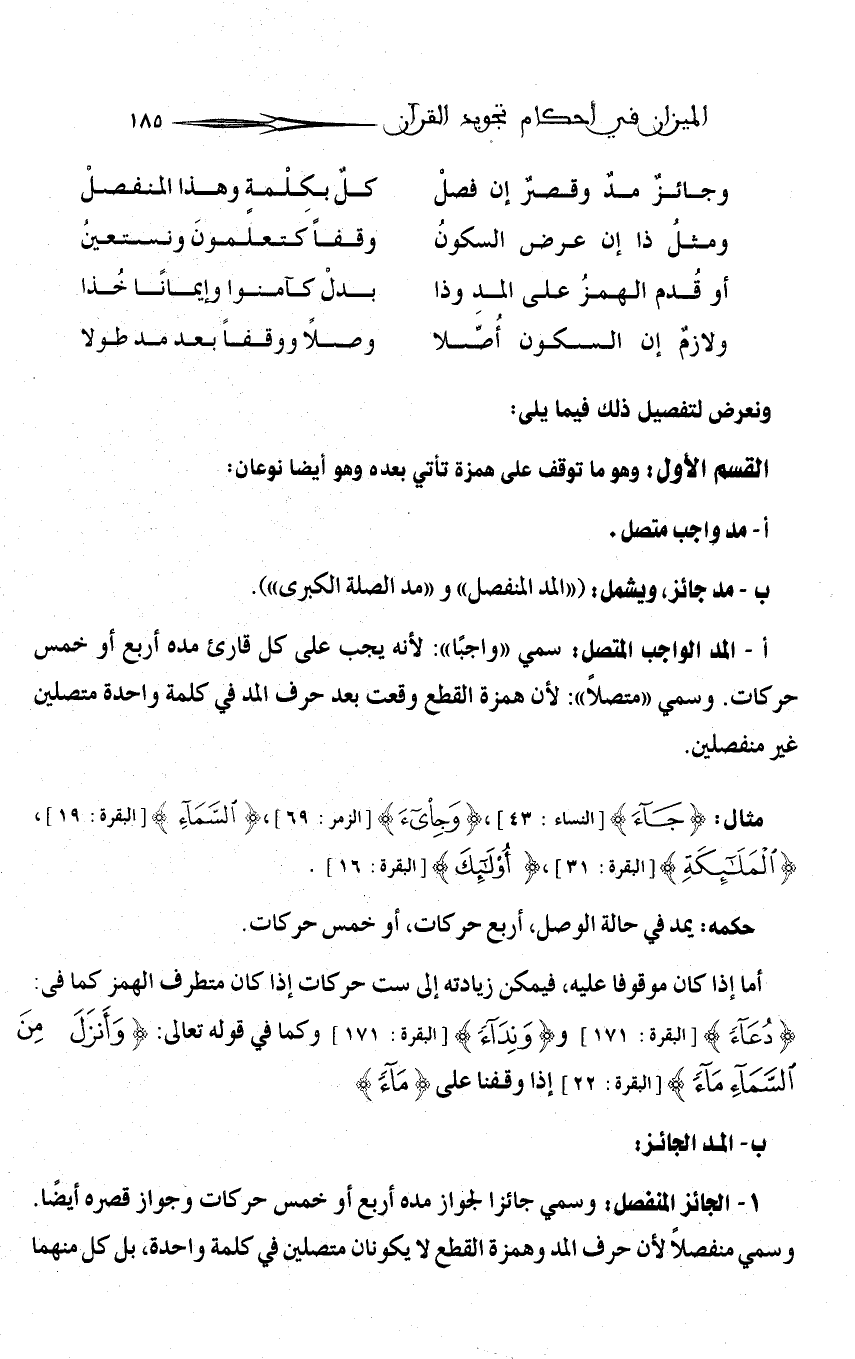 الميزان في أحكام تجويد القرآن ١٨٥
وجـائـزٌ مدٌ وقـصـرٌ إن فصلْ كـلٌ بـكِـلْـمـةٍ وهـذا المنفـصـلْ
ومـثـلُ ذا إن عـرض السكونُ وقـفـاً كـتـعـلـمـونَ ونـستـعينُ
أو قُـدم الـهـمـزُ عـلـى المـدِ وذا بـدلْ كـآمـنـوا وإيمـانًـا خُـذا
ولازمٌ إن الـسـكـون أُصِّـلا وصـلاً ووقـفـاً بـعـد مـد طـولا
ونعرض لتفصيل ذلك فيما يلى:
القسم الأول: وهو ما توقف على همزة تأتي بعده وهو أيضا نوعان:
أ- مد واجب متصل.
ب - مد جائز، ويشمل: («المد المنفصل» و «مد الصلة الكبرى»).
أ - المد الواجب المتصل: سمي «واجبًا»: لأنه يجب على كل قارئ مده أربع أو خمس
حركات. وسمي «متصلاً»: لأن همزة القطع وقعت بعد حرف المد في كلمة واحدة متصلين
غير منفصلين.
مثال: ﴿ جَآءَ ﴾ [النساء : ٤٣] ،﴿ وَجِاْىٓءَ ﴾ [الزمر : ٦٩] ،﴿ ٱلسَّمَآءِ ﴾ [البقرة: ١٩] ،
﴿ ٱلْمَلَـٰٓئِكَةِ ﴾ [البقرة: ٣١] ،﴿ أُوْلَـٰٓئِكَ ﴾ [البقرة: ١٦] .
حكمه: يمد في حالة الوصل، أربع حركات، أو خمس حركات.
أما إذا كان موقوفا عليه، فيمكن زيادته إلى ست حركات إذا كان متطرف الهمز كما فى:
﴿ دُعَآءً ﴾ [البقرة: ١٧١] و﴿ وَنِدَآءً ﴾ [البقرة: ١٧١] وكما في قوله تعالى: ﴿ وَأَنزَلَ مِنَ
ٱلسَّمَآءِ مَآءً ﴾ [البقرة: ٢٢] إذا وقفنا على ﴿ مَآءً ﴾
ب- المد الجائز:
١- الجائز المنفصل: وسمي جائزا لجواز مده أربع أو خمس حركات وجواز قصره أيضًا.
وسمي منفصلاً لأن حرف المد وهمزة القطع لا يكونان متصلين في كلمة واحدة، بل كل منهما